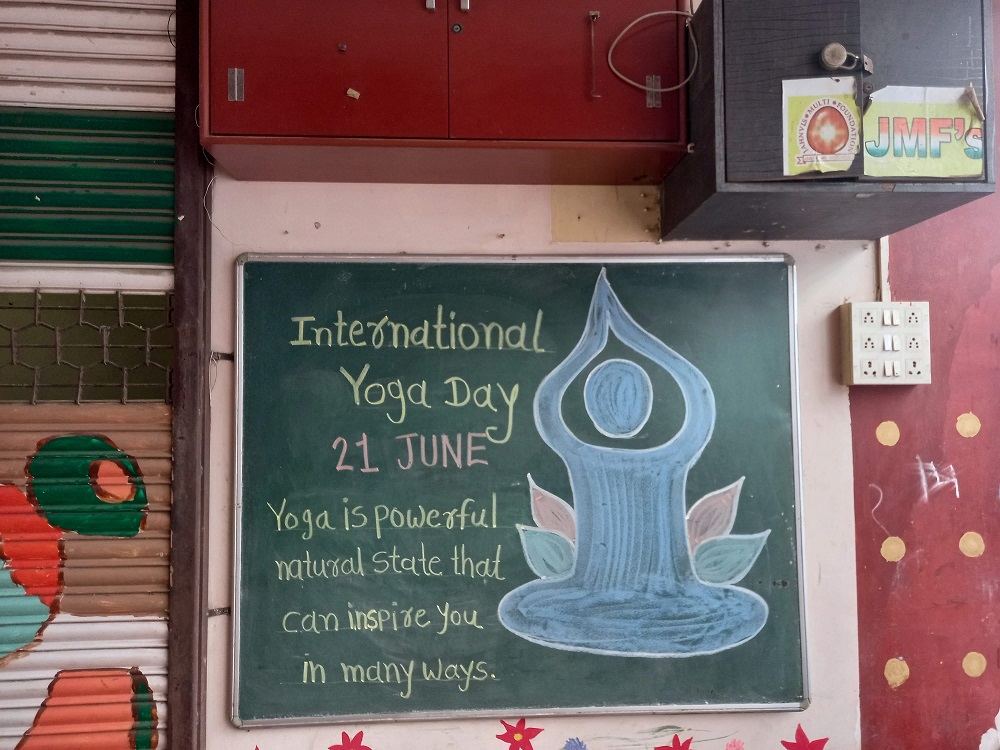 JAHNVIS MULTI FOUNDATION
JMF's
International
Yoga Day
21 JUNE
Yoga is powerful
natural state that
can inspire you
in many ways.